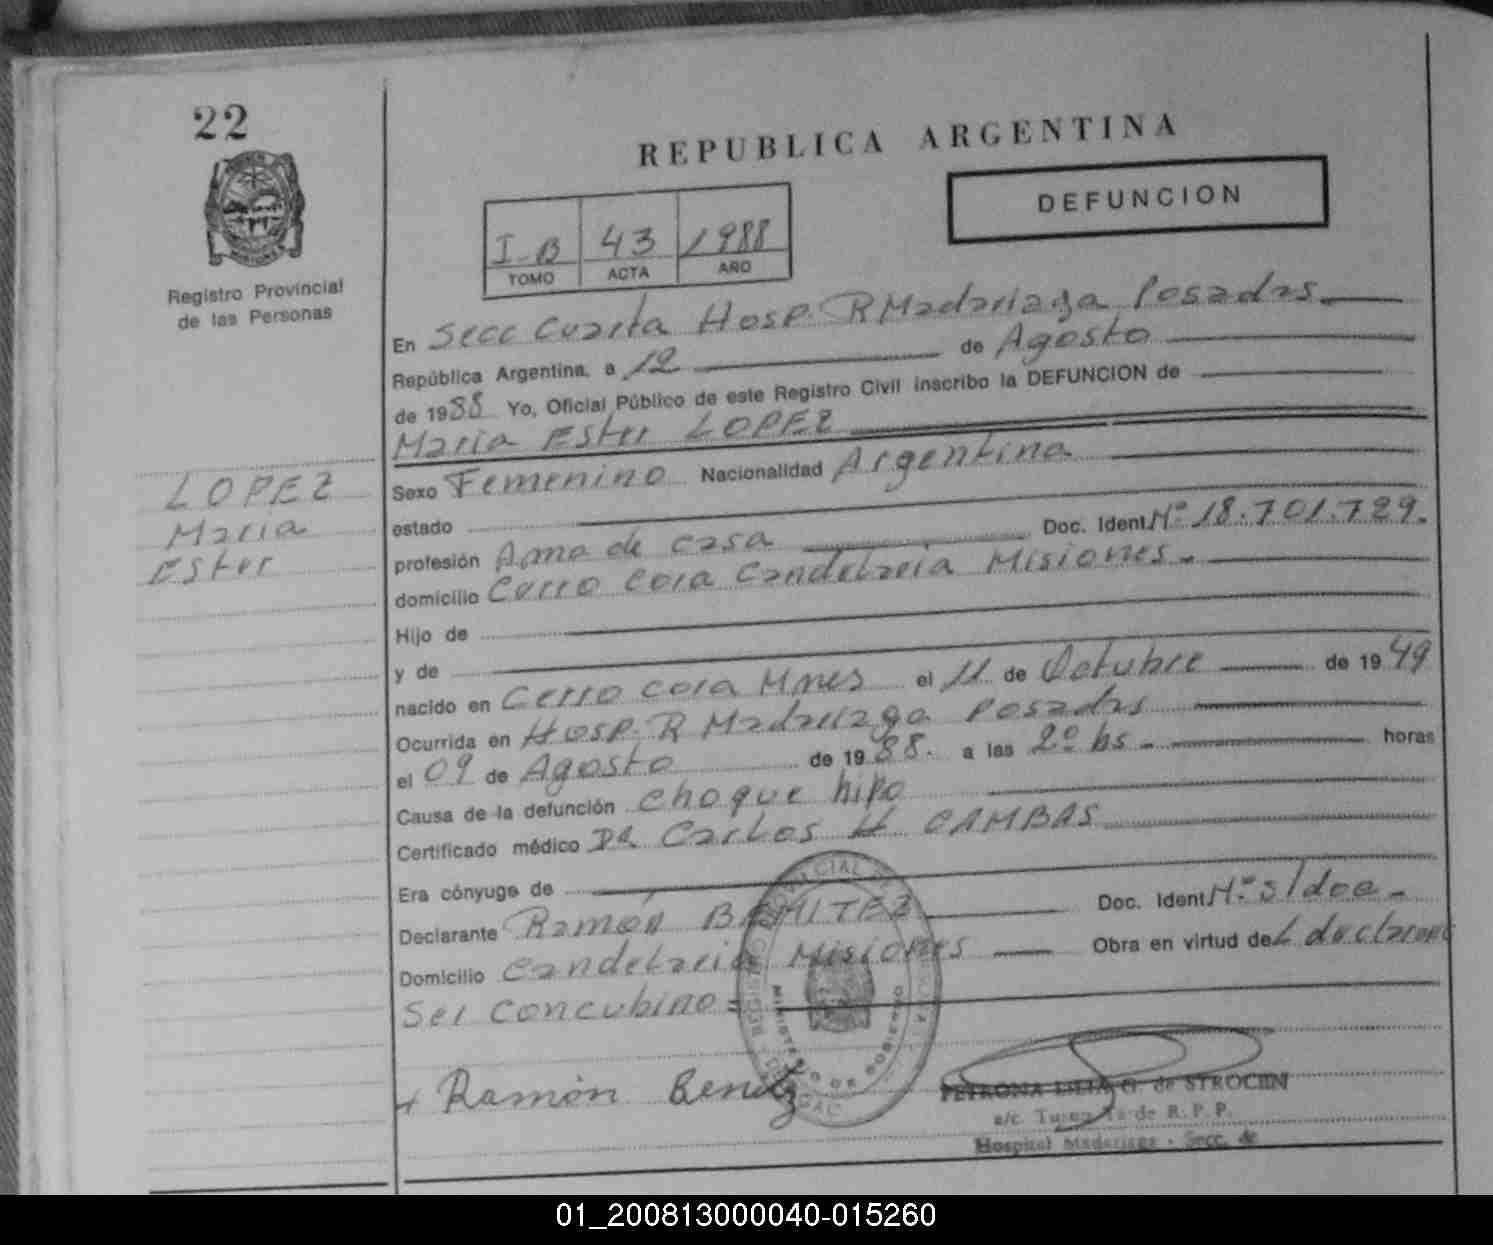 22
REPUBLICA ARGENTINA
DEFUNCION
I-B 43 1988
TOMO ACTA AÑO
Registro Provincial
de las Personas
En Secc Cuarta Hosp. R Madariaga Posadas.
República Argentina, a 12 de Agosto
de 1988 Yo, Oficial Público de este Registro Civil inscribo la DEFUNCION de
Maria Ester LOPEZ
LOPEZ
Maria
Ester
Sexo Femenino Nacionalidad Argentina
estado
profesión Ama de casa Doc. Ident Nº 18.701.729.
domicilio Cerro Cora Candelaria Misiones.
Hijo de
y de
nacido en Cerro Cora Mnes el 11 de Octubre de 1949
Ocurrida en Hosp. R Madariaga Posadas
el 09 de Agosto de 1988. a las 2º hs. horas
Causa de la defunción choque hipo
Certificado médico DR Carlos H CAMBAS
Era cónyuge de
Declarante Ramón BENITEZ Doc. Ident Nº s/doc.
Domicilio Candelaria Misiones Obra en virtud de
Ser Concubino =
Ramón Benitez
PETRONA LILIA G. de STROCEN
a/c. Turno de R. P. P.
Hospital Madariaga - Secc. 4a
MINISTERIO DE GOBIERNO
01_200813000040-015260